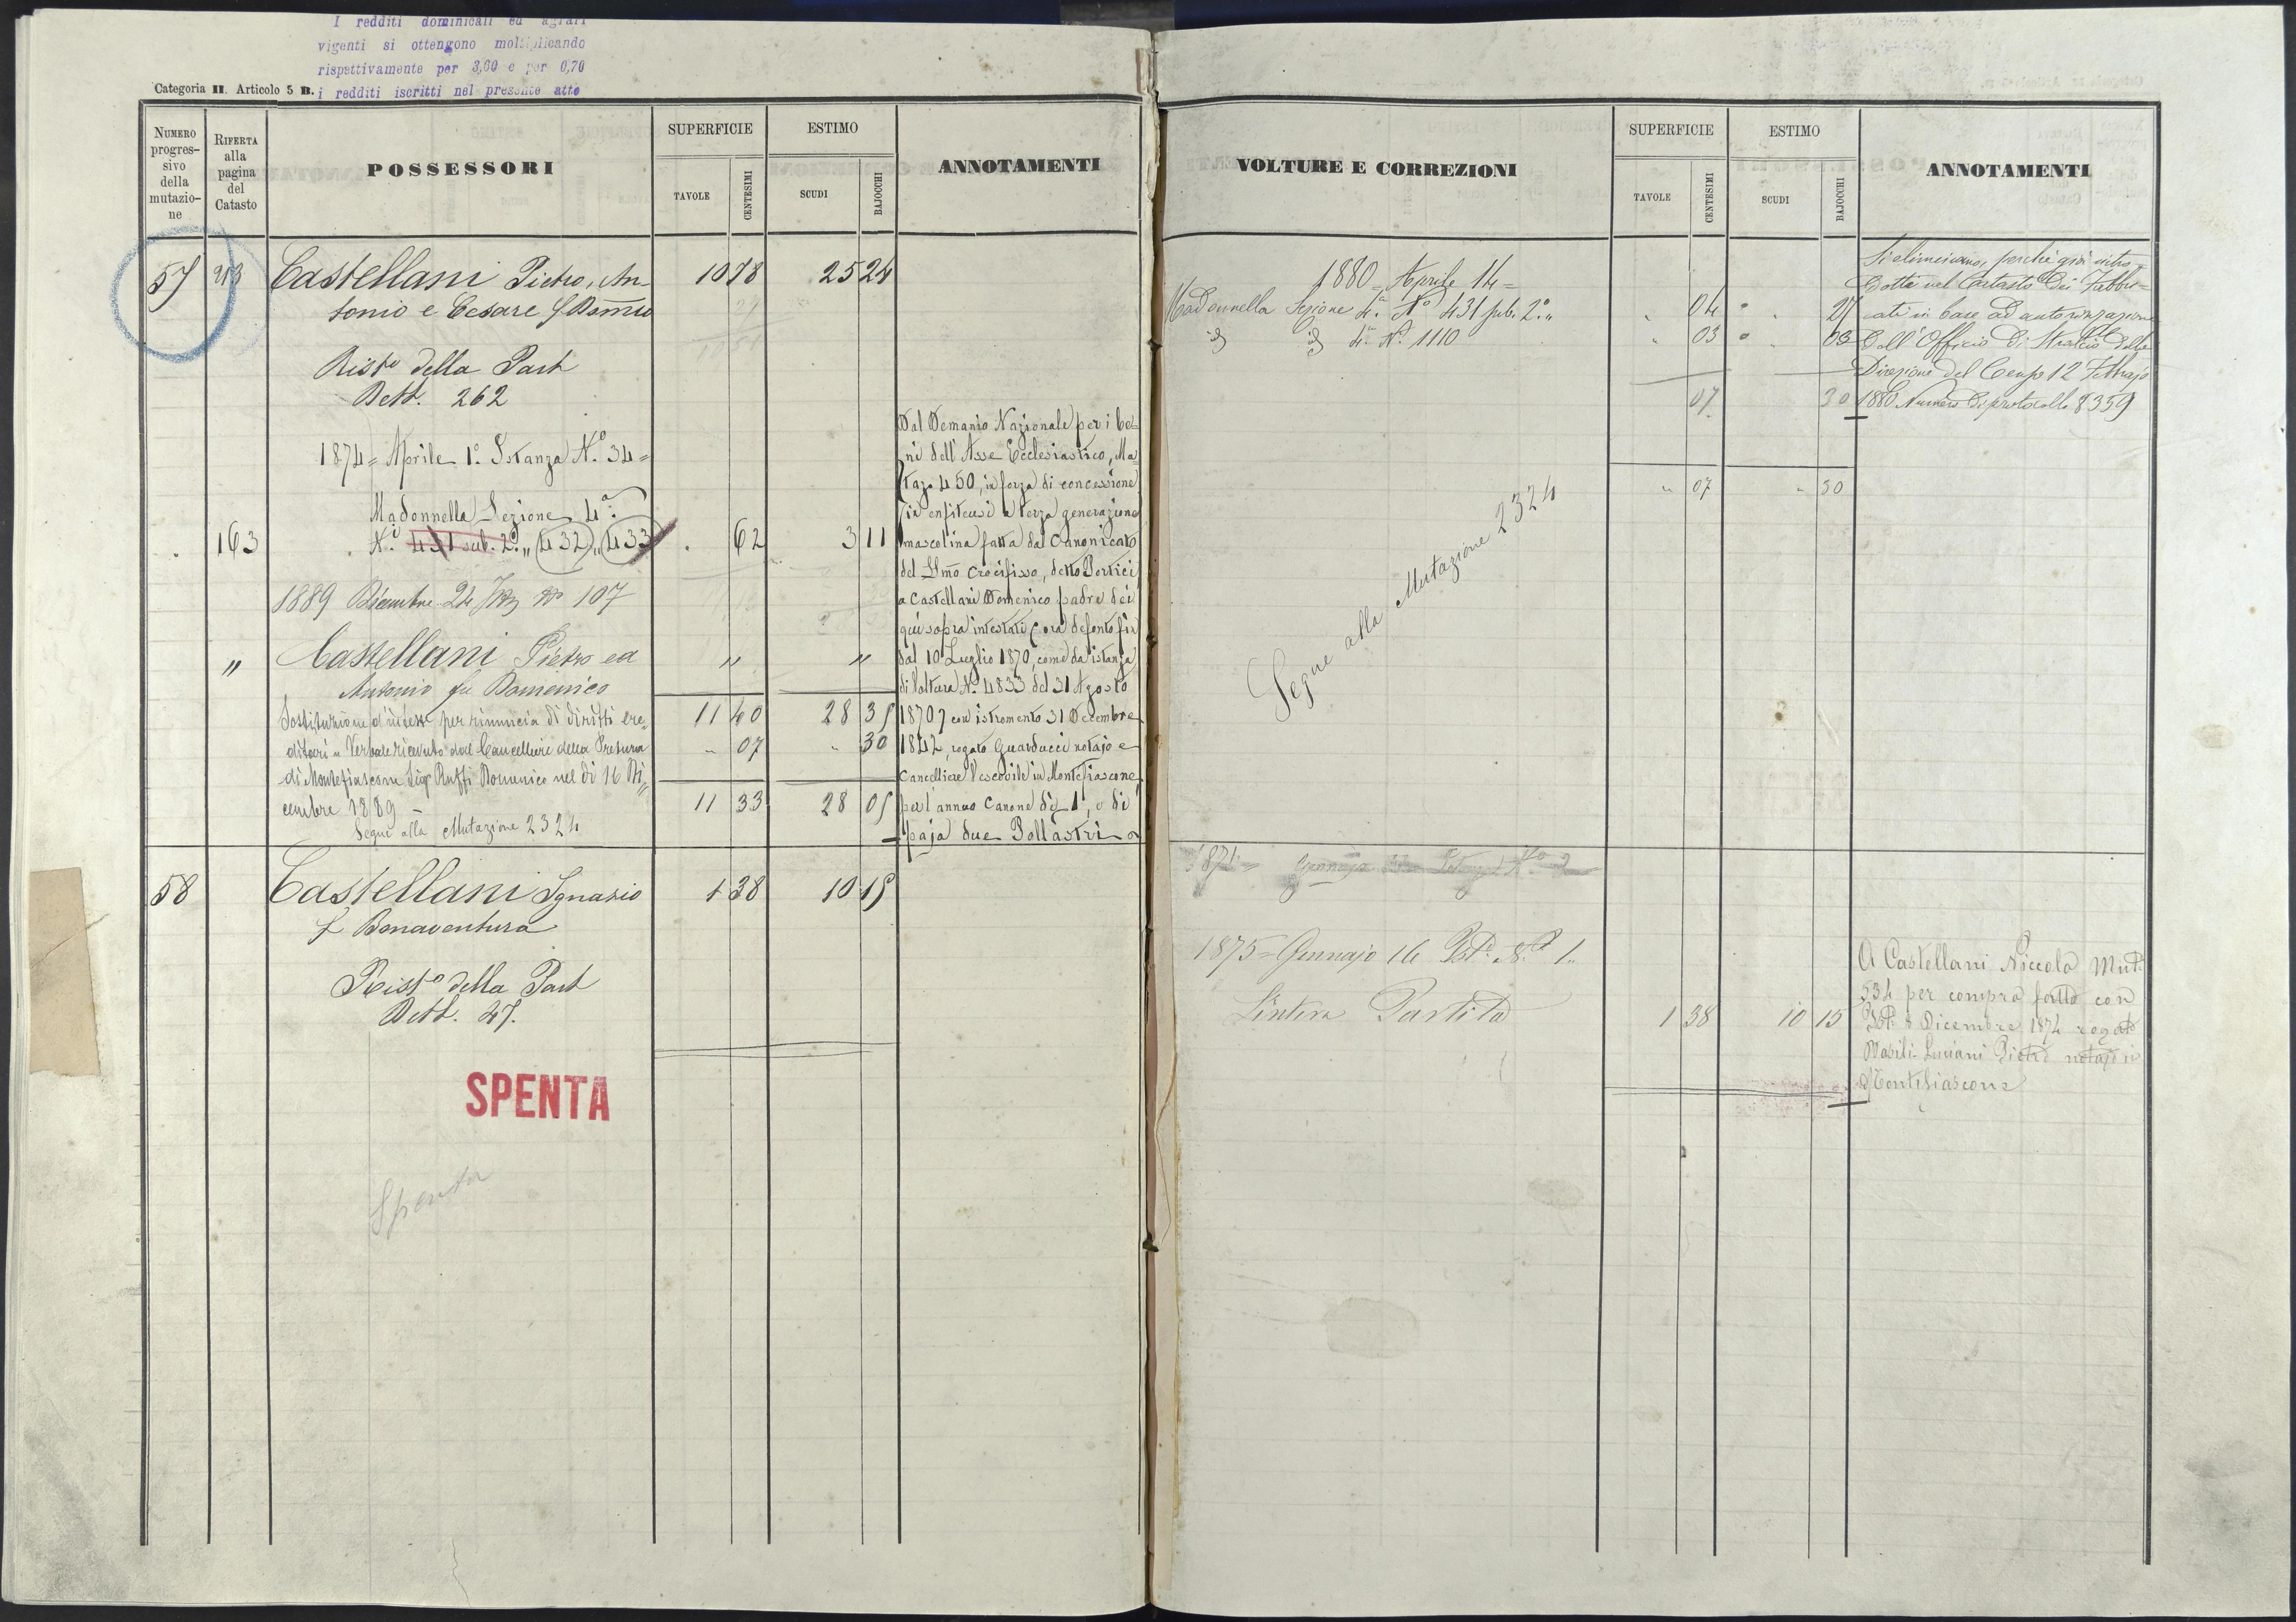 I redditi dominicali ed agrari
vigenti si ottengono moltiplicando
rispettivamente per 3,60 e per 0,70
i redditi iscritti nel presente atto
Categoria II. Articolo 5 B.
NUMERO progressivo della mutazione
RIFERTA alla pagina del Catasto
POSSESSORI
SUPERFICIE
TAVOLE
CENTESIMI
ESTIMO
SCUDI
BAJOCCHI
ANNOTAMENTI
57 213 Castellani Pietro, An 10 78 25 24
tonio e Cesare f Domco
Risto della Part
Dett. 262
1874 = Aprile 1º Istanza Nº 34 =
Madonnella Sezione 4ª
163 Nº 431 sub. 2º „ 432 „ 433 . 62 3 11
1889 Dicembre 24 Nº 107
„ Castellani Pietro ed „ „
Antonio fu Domenico
Sostituzione d'intest. per rinuncia di diritti ere
ditari = Verbale ricevuto dal Cancelliere della Pretura
di Montefiascone Sigr Ruffi Domenico nel dì 16 Di
cembre 1889 —
Segue alla Mutazione 2324
11 40 28 35
„ 07 „ 30
11 33 28 05
Dal Demanio Nazionale per i be=
ni dell'Asse Ecclesiastico, Mu
taz. 450, in forza di concessione
in enfiteusi a terza generazione
mascolina fatta dal Canonicato
del SSmo Crocifisso, detto Portici
a Castellani Domenico padre dei
qui sopra intestati (ora defonto fin
dal 10 Luglio 1870, come da istanza
di Voltura Nº 4833 del 31 Agosto
1870) con istromento 31 Decembre
1842, rogato Guarducci notajo e
Cancelliere Vescovile in Montefiascone
per l'annuo Canone di 1, e di
paja due Pollastri
58 Castellani Ignazio 1 38 10 15
f Bonaventura
Risto della Part
Dett. 47.
SPENTA
Spenta
VOLTURE E CORREZIONI
SUPERFICIE
TAVOLE
CENTESIMI
ESTIMO
SCUDI
BAJOCCHI
ANNOTAMENTI
1880 = Aprile 14 =
Madonnella Sezione 4ª Nº 431 sub. 2º „ „ 04 „ 27
4ª Nº 1110 „ 03 „ 03
07 30
„ 07 „ 30
Si eliminano, perchè già intro=
dotti nel Catasto dei Fabbri=
cati in base ad autorizzazione
dall'Officio di Stralcio della
Direzione del Censo 12 Febbrajo
1880 Numero di protocollo 8359
Segue alla Mutazione 2324
1874 = Gennajo Nº 2
1875 = Gennajo 16 Istª Nº 1.
L'intera Partita 1 38 10 15
A Castellani Niccola Mut.
534 per compra fatta con
Dicembre 1874 rogato
Basili-Luciani Pietro notajo in
Montefiascone